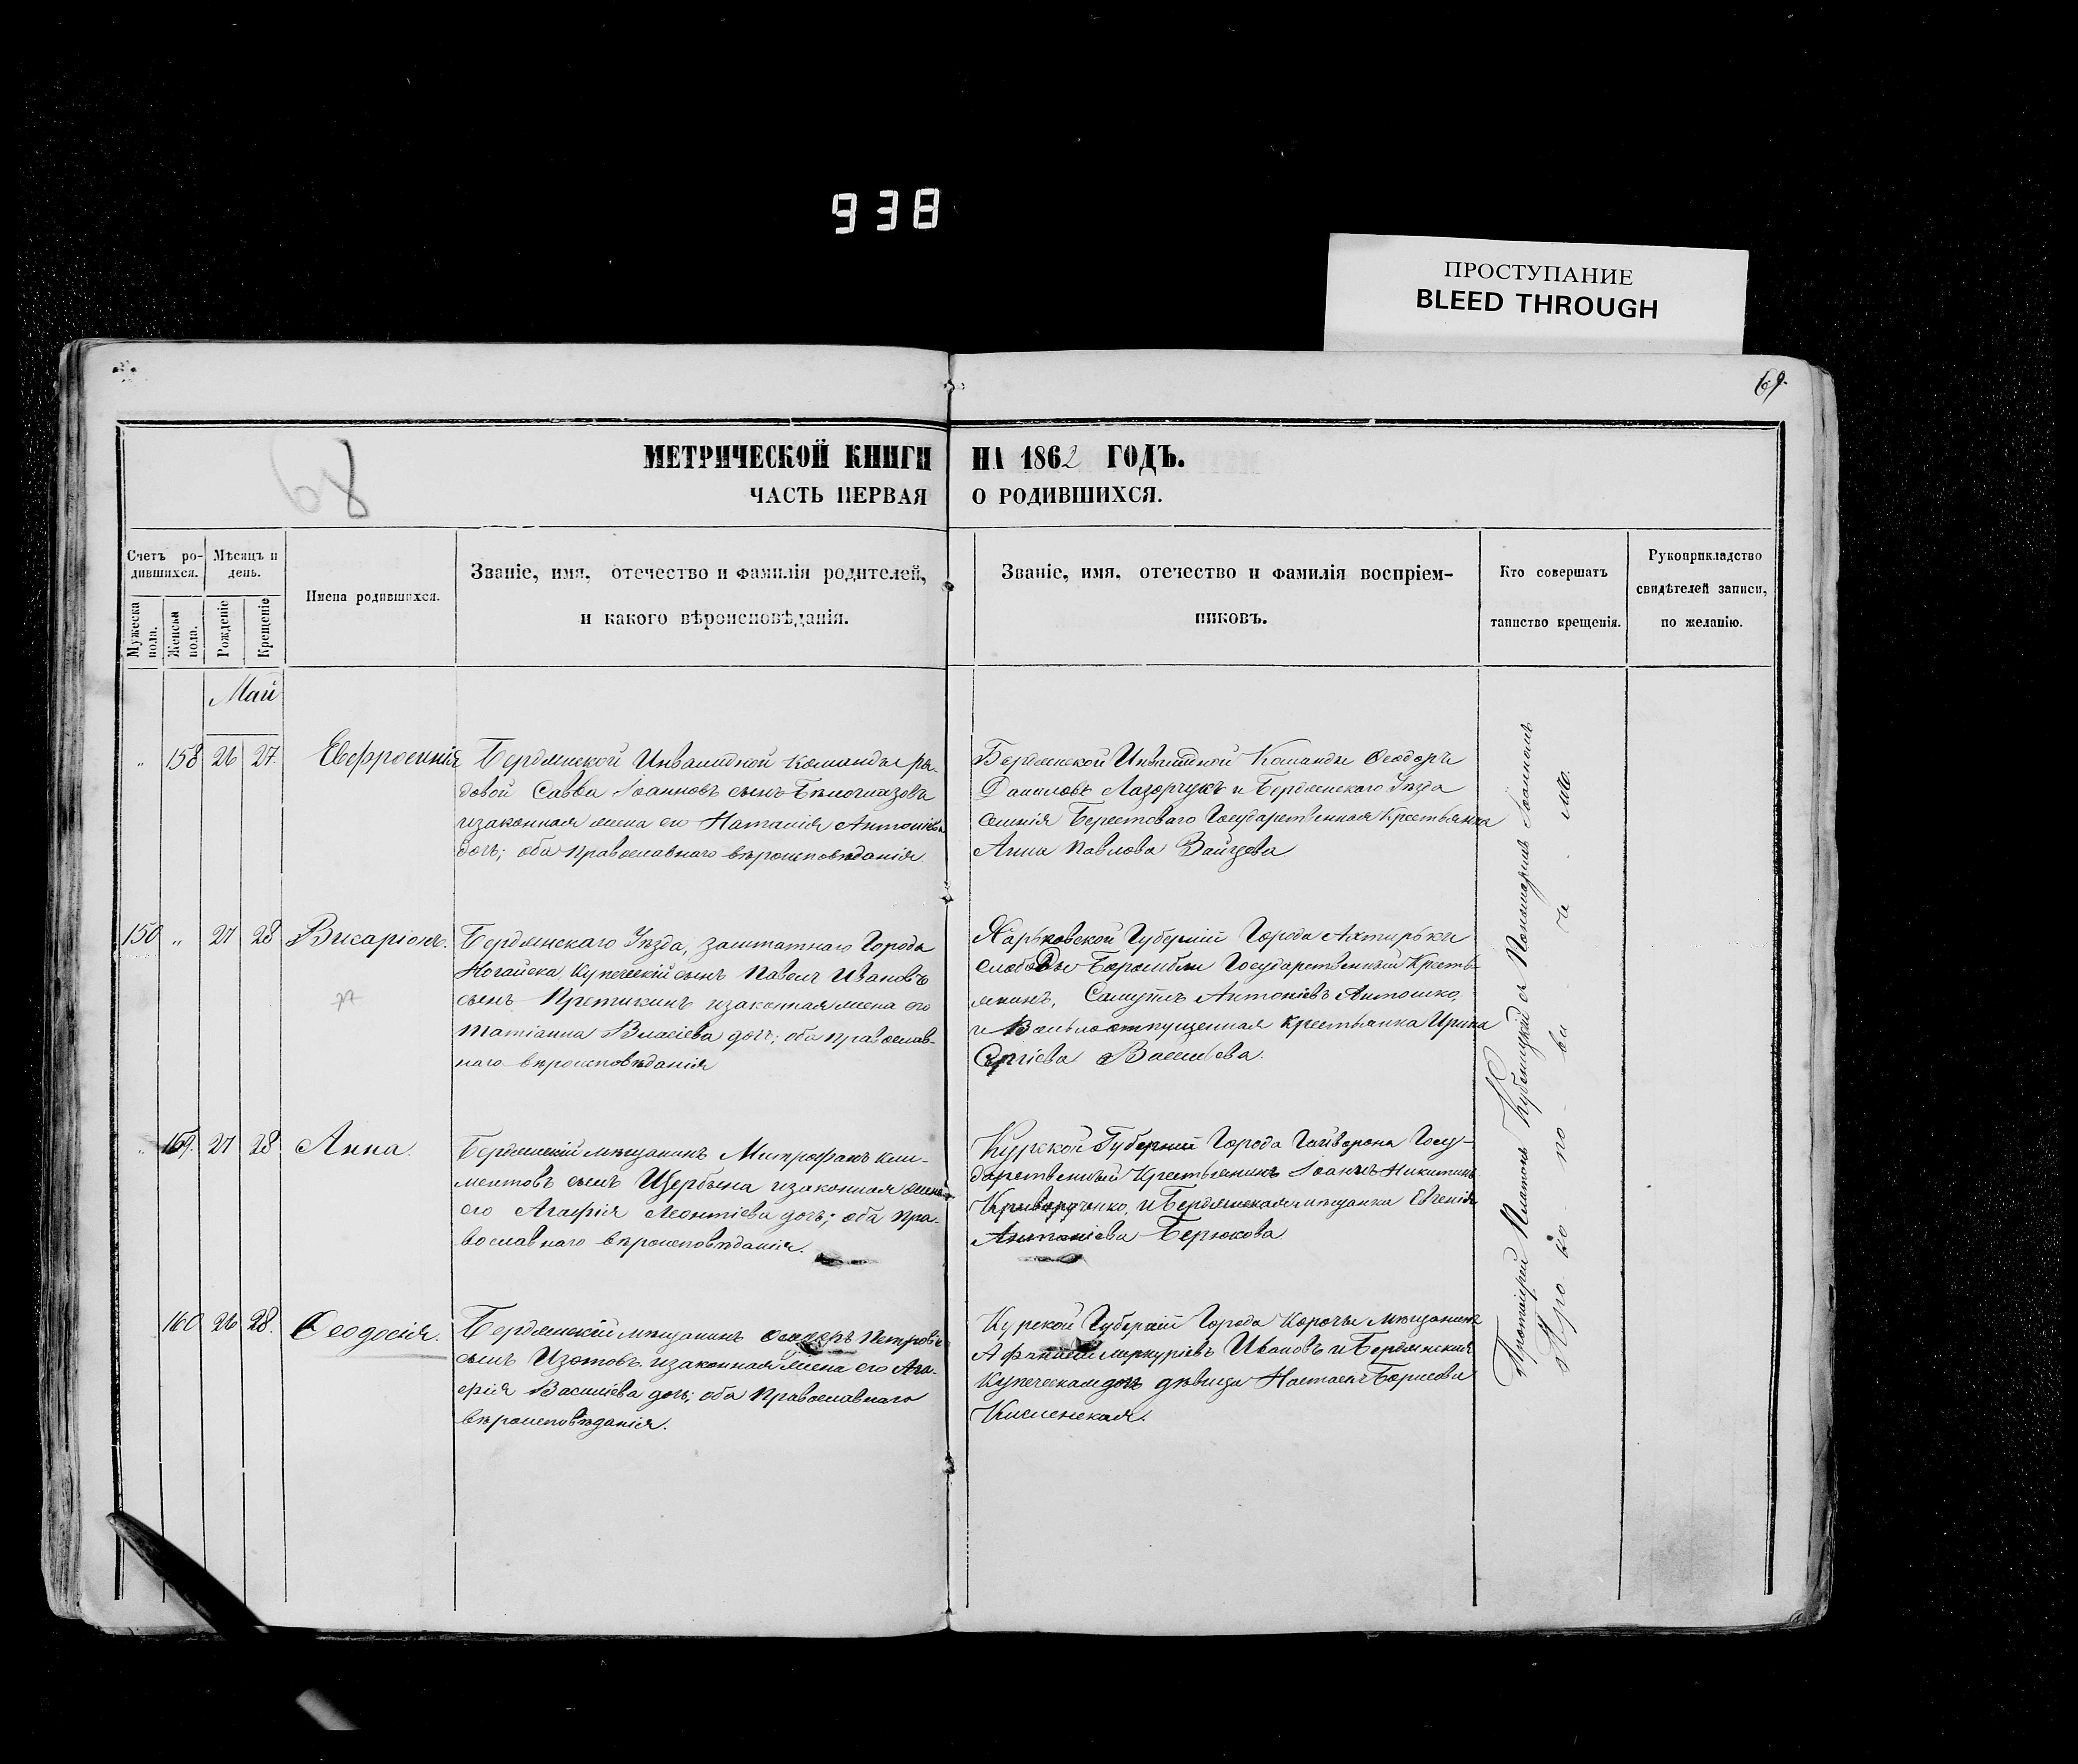 938
ПРОСТУПАНИЕ
BLEED THROUGH
69.
68
МЕТРИЧЕСКОЙ КНИГИ НА 1862 ГОДЪ.
ЧАСТЬ ПЕРВАЯ О РОДИВШИХСЯ.
Счетъ ро-
дившихся.
Мужеска пола.
Женска пола.
Мѣсяцъ и
день.
Рожденіе
Крещеніе
Имена родившихся.
Званіе, имя, отечество и фамилія родителей,
и какого вѣроисповѣданія.
Званіе, имя, отечество и фамилія воспріем-
никовъ.
Кто совершатъ
таинство крещенія.
Рукоприкладство
свидѣтелей записи,
по желанію.
Май
„ 158 26 27. Евфросинія
Бердянской Инвалидной команды ря-
довой Савва Іоанновъ сынъ Бѣлоглазовъ
и законная жена его Наталія Антоніева
дочь; оба православнаго вѣроисповѣданія
Бердянской Инвалидной Команды Ѳеодоръ
Даниловъ Лазорчукъ и Бердянскаго Уѣзда
селенія Берестоваго Государственная Крестьянка
Анна Павлова Зайцева
150 „ 27 28 Висаріонъ.
Бердянскаго Уѣзда, заштатнаго Города
Ногайска, Купеческій сынъ Павелъ Ивановъ
сынъ и законная жена его
Татіанна Власіева дочь; оба православ-
наго вѣроисповѣданія
Харьковской Губерніи Города Ахтырки
слободы Боромли Государственный Кресть-
янинъ, Антоніевъ Антошко,
и Вольноотпущенная крестьянка Ирина
Сергіева
„ 159. 27 28 Анна.
Бердянскій мѣщанинъ Митрофанъ Кли-
ментовъ сынъ Щербина и законная жена
его Агафія Леонтіева дочь; оба пра-
вославнаго вѣроисповѣданія.
Курской Губерніи Города Гайворона Госу-
дарственный Крестьянинъ Іоаннъ Никитинъ
Криворученко, и Бердянская мѣщанка Евгенія
Антоніева Берюкова
160 26 28. Ѳеодосія.
Бердянскій мѣщанинъ Петровъ
сынъ Изотовъ и законная жена его Ага-
фія Василіева дочь; оба Православнаго
вѣроисповѣданія.
Курской Губерніи Города Корочи мѣщанинъ
Афанасій Меркуріевъ Ивановъ и Бердянская
Купеческая дочь дѣвица Настасья Борисова
Протоіерей Платонъ съ Пономаремъ Іоанномъ